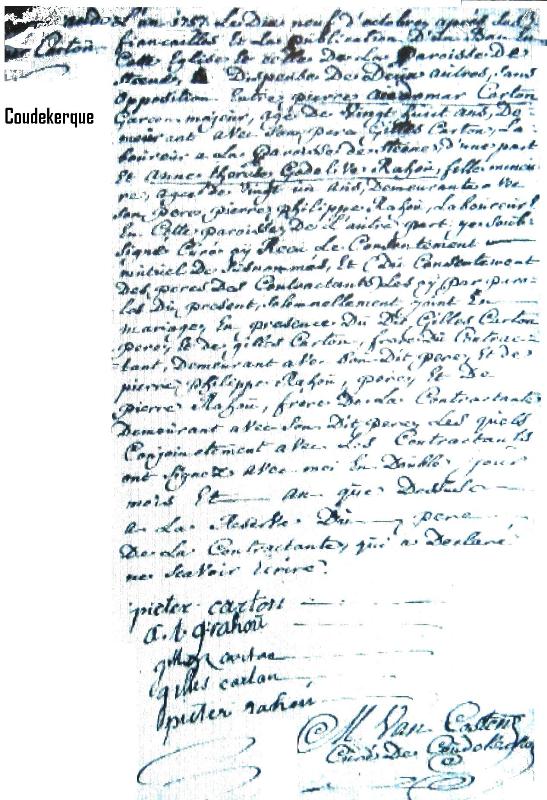 L'an 1757 Le Dix neuf d'octobre, apres Les
fiancailles Et La publication D'un Ban En
Cette Eglise et celle De La Paroisse De
Steene, Dispense De Deux autres, sans
opposition Entre pierre Carton
Garcon majeur, agé de Vingt huit ans, De
meurant avec Son pere Gilles Carton, La
boureur a La Paroisse de Steene d'une part
Et Anne therese Godelive Rahou, fille mineu
re, agée de Vingt un ans, Demeurante a ve
Son pere pierre philippe Rahou, Laboureur
En Cette paroisse De L'autre part, je Sousi
Signé Curé ay Recu Le Consentement
mutuel De Susnommés, Et Du Consentement
Des peres Des Contractants Les ay par paro
les Du present, Solemnellement joint En
mariage, En presence Du Dit Gilles Carton
pere, Et de gilles Carton, frere Du Contrac
tant, Demeurant avec Son Dit pere, Et de
pierre philippe Rahou, pere, Et De
pierre Rahou, frere De La Contractante
Demeurant avec Son Dit pere, Les quels
Conjointement avec Les Contractants
ont Signez avec moi En Double, jour
mois Et an que Dessus
a La Reserve Du pere
De La Contractante, qui a Declaré
ne Scavoir Ecrire.
Carton
Coudekerque
pieter carton
a. t. g rahou
carton
gilles carton
pieter rahou
M. Van
Curé De Coudekerque